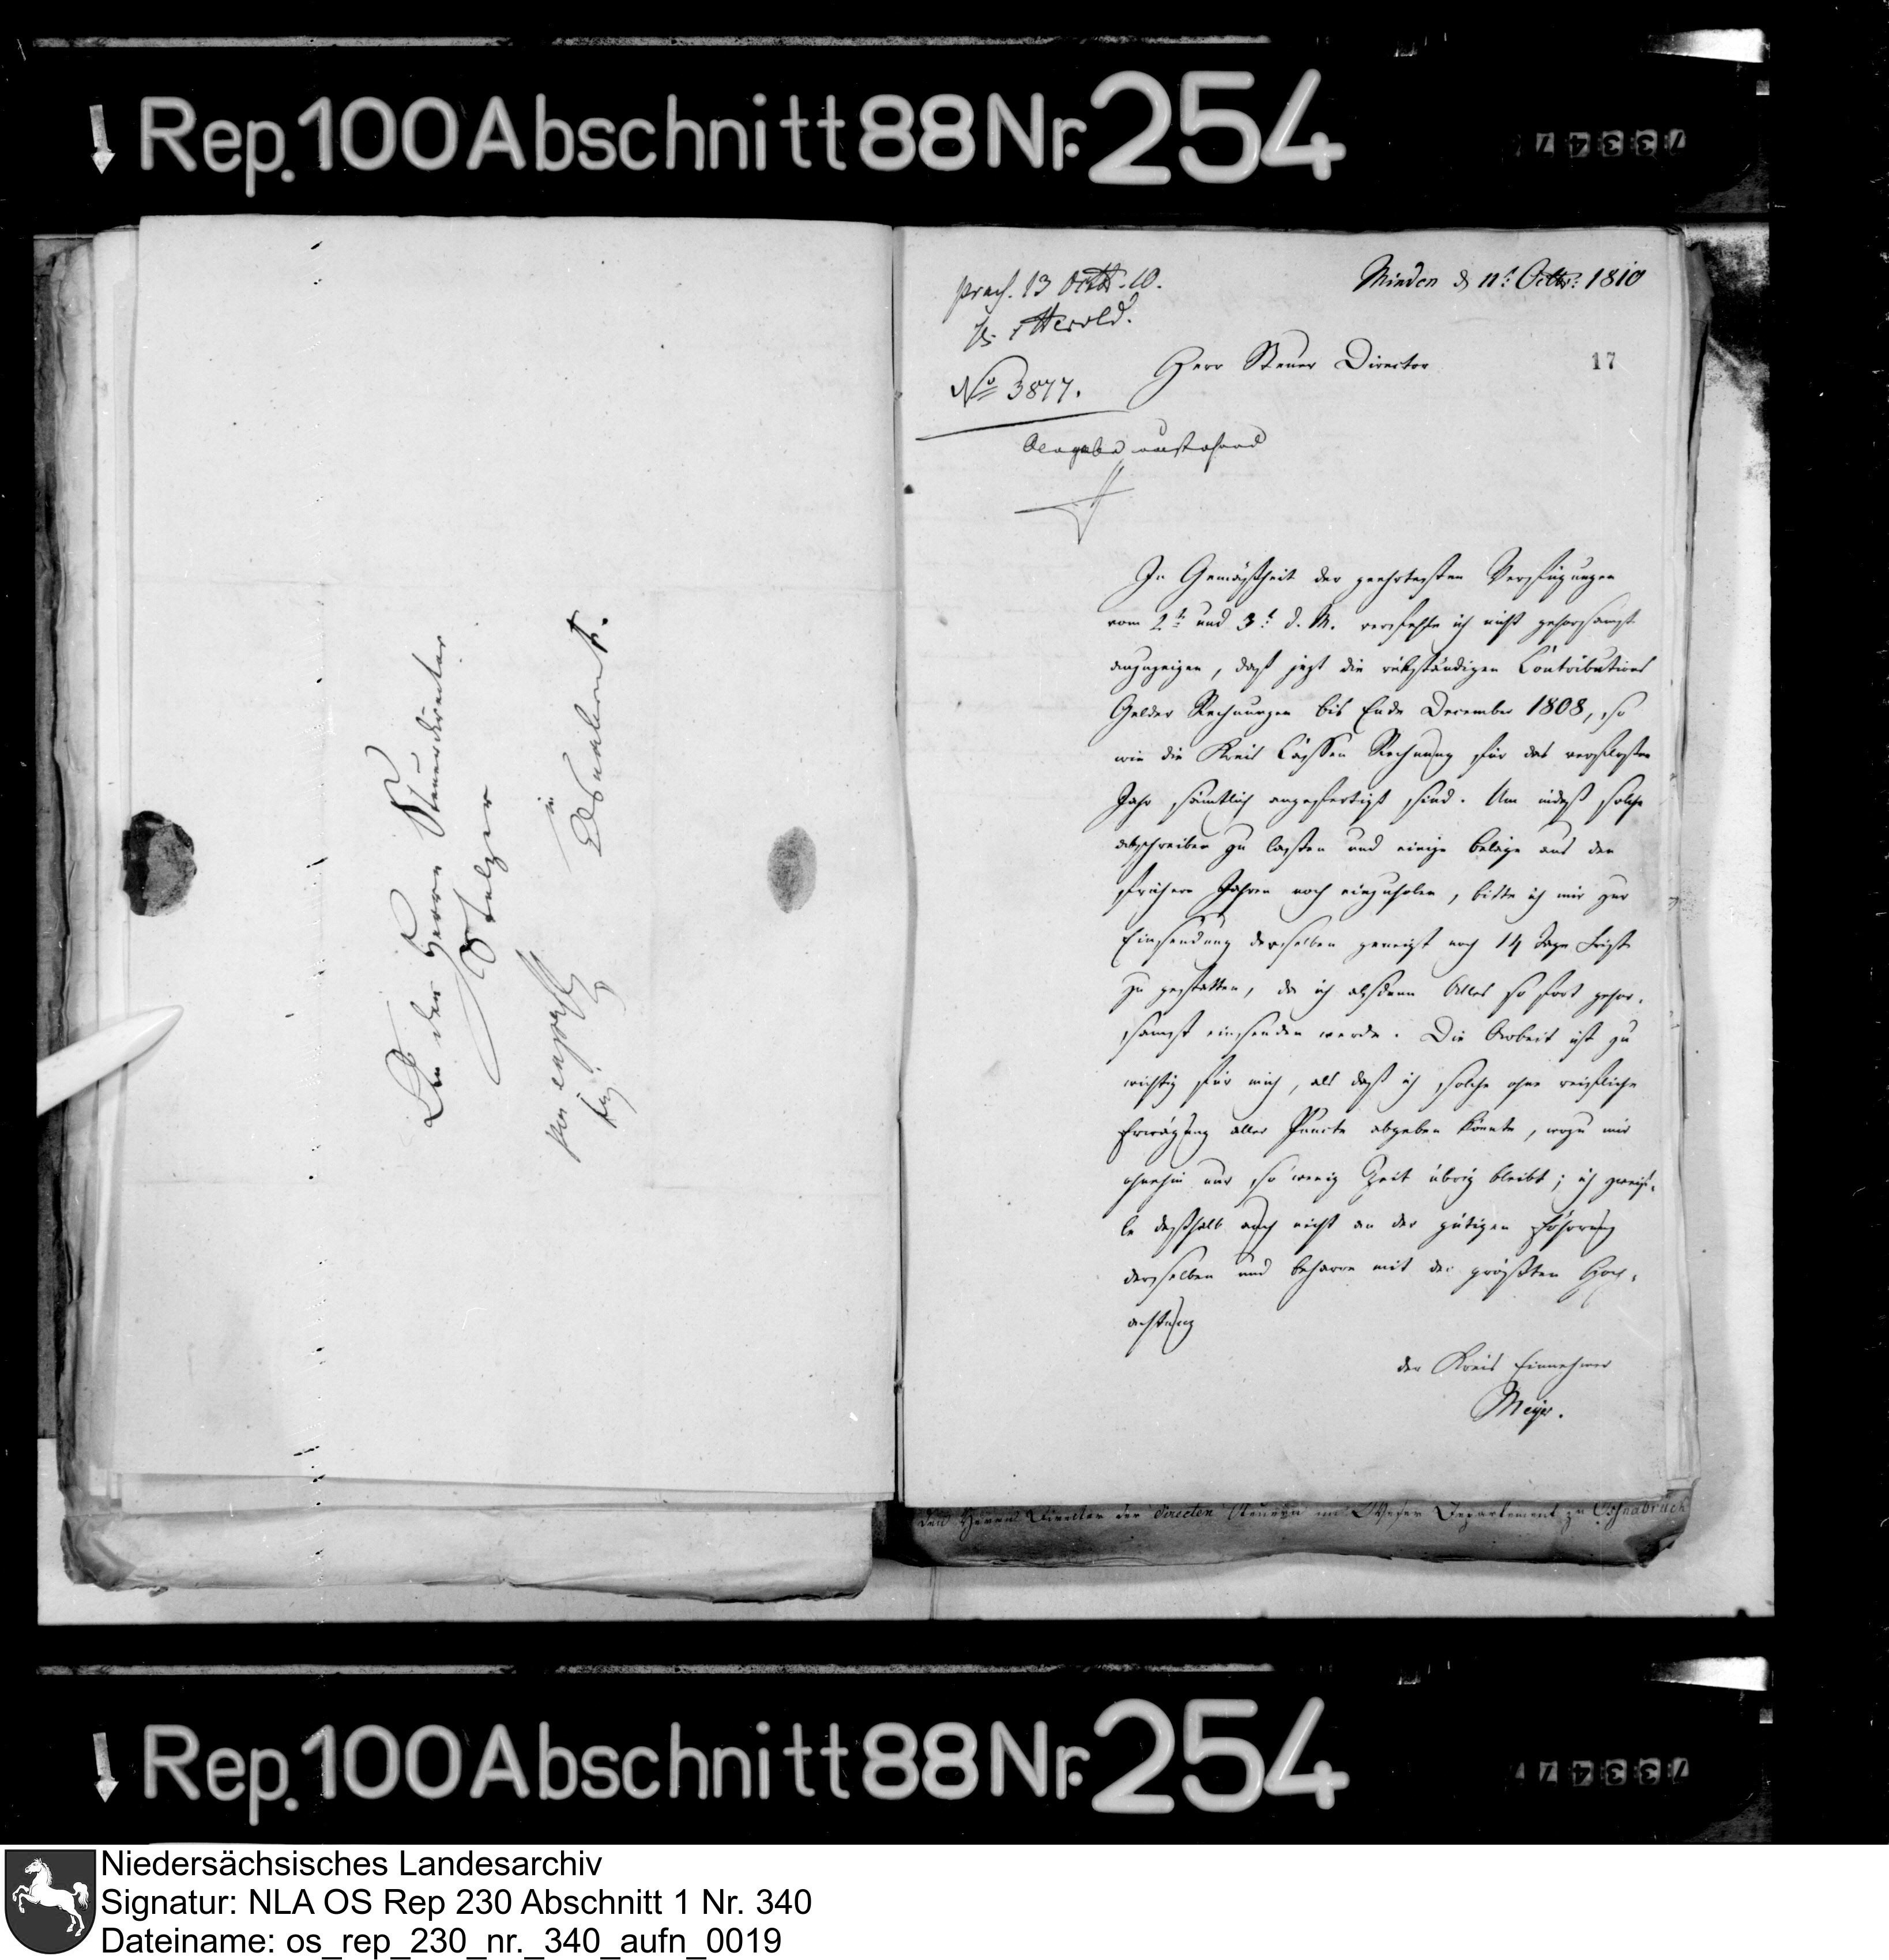 Rep. 100 Abschnitt 88 Nr. 254
An den Herrn Steuerdirector
Stelzer
in
Osnabrück.
per express
praes. 13 Octbr. 10.
Herold.
No 3877.
Minden d 11t. Octbr: 1810
Herr Steuer Director
17
In Gemäsheit der geehrtesten Verfügungen
vom 2t und 3t d. M. verfehle ich nicht gehorsamst
anzuzeigen, daß jezt die rükständigen Contributions
Gelder Rechnungen bis Ende December 1808, so
wie die Kreis Cassen Rechnung für das verfloßne
Jahr sämtlich angefertigt sind. Um indeß solche
abschreiben zu lassen und einige beläge aus den
frühern Jahren noch einzuholen, bitte ich mir zur
Einsendung derselben geneigt noch 14 Tage Frist
zu gestatten, da ich alsdann Alles so fort gehor-
samst einsenden werde. Die Arbeit ist zu
wichtig für mich, als daß ich solche ohne reifliche
Erwägung aller Puncte abgeben könnte, wozu mir
ohnehin nur so wenig Zeit übrig bleibt; ich zweif-
le deßhalb auch nicht an der gütigen Erhörung
derselben und beharre mit der größten Hoch-
achtung
der Kreis Einnehmer
Meyer.
Herrn Director der directen Steuern im Weser Departement zu Osnabrück
Rep. 100 Abschnitt 88 Nr. 254
Niedersächsisches Landesarchiv
Signatur: NLA OS Rep 230 Abschnitt 1 Nr. 340
Dateiname: os_rep_230_nr._340_aufn_0019